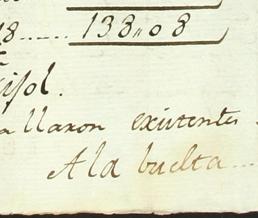 8...... 138,,08
isol.
allaron existentes
A la buelta...